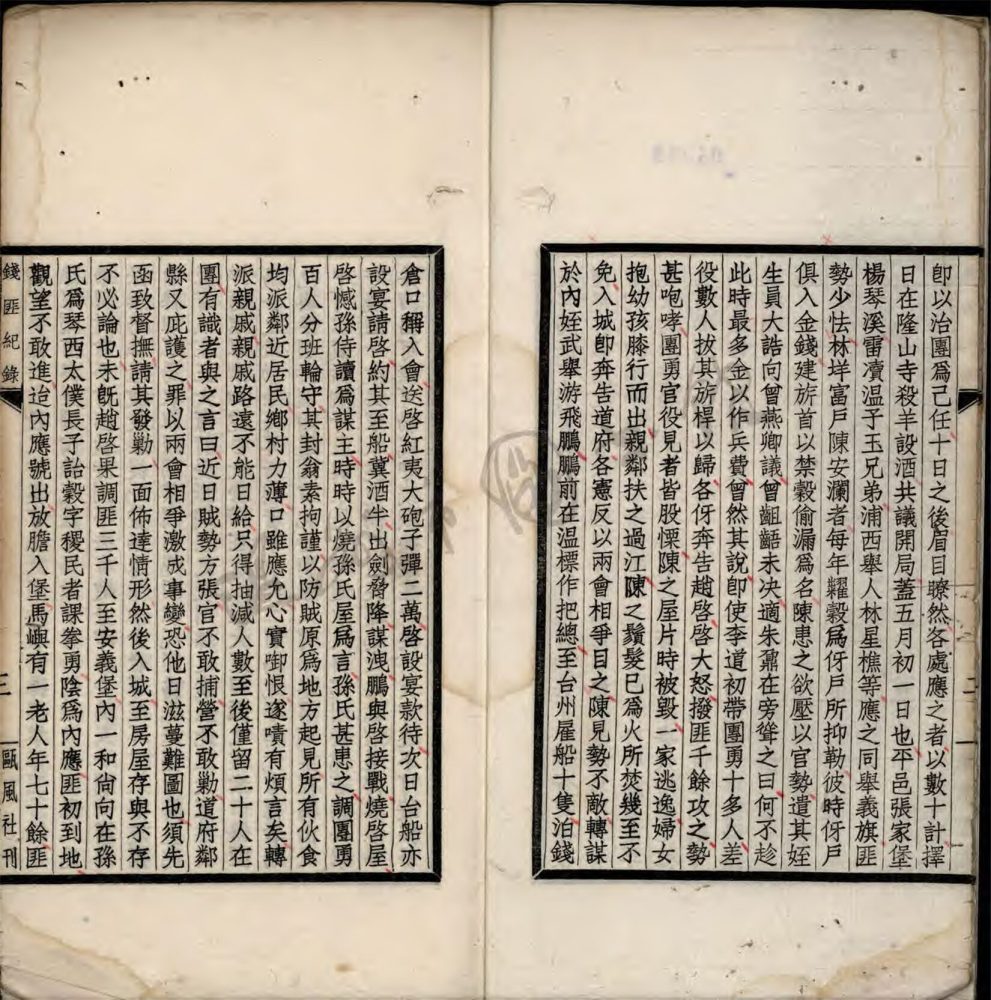 卽以治團爲己任十日之後眉目瞭然各處應之者以數十計擇
日在隆山寺殺羊設酒共議開局蓋五月初一日也平邑張家堡
楊琴溪雷瀆溫子玉兄弟浦西舉人林星樵等應之同舉義旗匪
勢少怯林垟富戶陳安瀾者每年糶穀爲伢戶所抑勒彼時伢戶
俱入金錢建旂首以禁穀偷漏爲名陳患之欲壓以官勢遣其姪
生員大誥向曾燕卿議曾齟齬未決適朱鼐在旁聳之曰何不趁
此時最多金以作兵費曾然其說卽使李道初帶團勇十多人差
役數人拔其旂桿以歸各伢奔告趙啓啓大怒撥匪千餘攻之勢
甚咆哮團勇官役見者皆股慄陳之屋片時被毀一家逃逸婦女
抱幼孩膝行而出親鄰扶之過江陳之鬚髮已爲火所焚幾至不
免入城卽奔告道府各憲反以兩會相爭目之陳見勢不敵轉謀
於內姪武舉游飛鵬鵬前在溫標作把總至台州雇船十隻泊錢
二
倉口稱入會送啓紅夷大砲子彈二萬啓設宴款待次日台船亦
設宴請啓約其至船冀酒半出劍脅降謀洩鵬與啓接戰燒啓屋
啓憾孫侍讀爲謀主時時以燒孫氏屋爲言孫氏甚患之調團勇
百人分班輪守其封翁素拘謹以防賊原爲地方起見所有伙食
均派鄰近居民鄉村力薄口雖應允心實啣恨遂嘖有煩言矣轉
派親戚親戚路遠不能日給只得抽減人數至後僅留二十人在
團有識者與之言曰近日賊勢方張官不敢捕營不敢勦道府鄰
縣又庇護之罪以兩會相爭激成事變恐他日滋蔓難圖也須先
函致督撫請其發勦一面佈達情形然後入城至房屋存與不存
不必論也未旣趙啓果調匪三千人至安義堡內一和尙向在孫
氏爲琴西太僕長子詒穀字稷民者課拳勇陰爲內應匪初到地
觀望不敢進迨內應號出放膽入堡馬嶼有一老人年七十餘匪
錢匪紀錄
三
甌風社刊